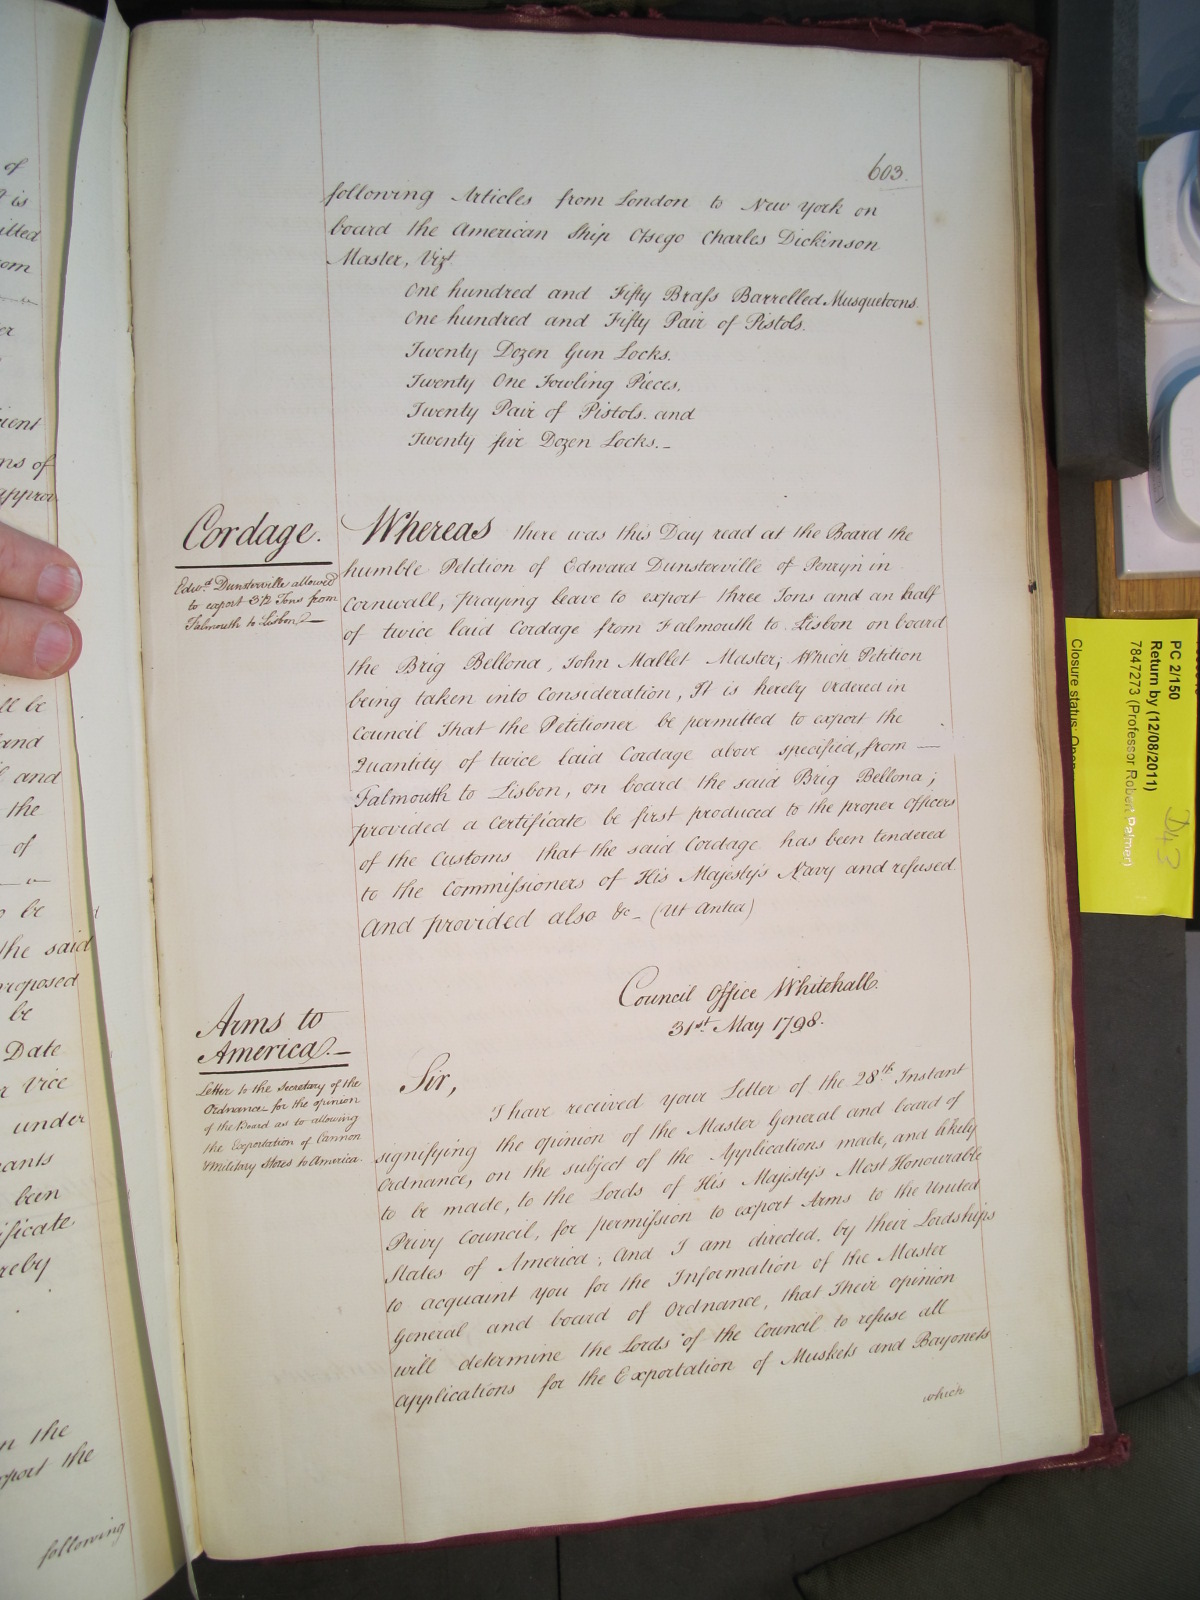 603.
following Articles from London to New York on
board the American Ship Otsego Charles Dickinson
Master, Vizt.
One hundred and Fifty Brass Barrelled Musquetoons.
One hundred and Fifty Pair of Pistols.
Twenty Dozen Gun Locks.
Twenty One Fowling Pieces.
Twenty Pair of Pistols. and
Twenty five Dozen Locks.—
Cordage.
Edwd. Dunsterville allowed
to export 3½ Tons from
Falmouth to Lisbon.—
Whereas there was this Day read at the Board the
humble Petition of Edward Dunsterville of Penryn in
Cornwall, praying leave to export three Tons and an half
of twice laid Cordage from Falmouth to Lisbon on board
the Brig Bellona, John Mallet Master; Which Petition
being taken into Consideration, It is hereby Ordered in
Council That the Petitioner be permitted to export the
Quantity of twice laid Cordage above specified, from —
Falmouth to Lisbon, on board the said Brig Bellona;
provided a Certificate be first produced to the proper Officers
of the Customs that the said Cordage has been tendered
to the Commissioners of His Majesty's Navy and refused
And provided also &c— (Ut Antea)
Council Office Whitehall.
31st. May 1798.
Arms to
America.—
Letter to the Secretary of the
Ordnance for the opinion
of the Board as to allowing
the Exportation of Cannon
& Military Stores to America.
Sir,
I have received your Letter of the 28th Instant
signifying the opinion of the Master General and board of
Ordnance, on the subject of the Applications made, and likely
to be made, to the Lords of His Majesty's Most Honourable
Privy Council, for permission to export Arms to the United
States of America; And I am directed, by their Lordships
to acquaint you for the Information of the Master
General and board of Ordnance, that Their opinion
will determine the Lords of the Council to refuse all
applications for the Exportation of Muskets and Bayonets
which
of
is
er
ns of
ll be
and
and
the
of
be
the said
proposed
be
Date
Vice
under
been
in the
the
following
PC 2/150
Return by (12/08/2011)
7847273 (Professor Robert Palmer)
Closure status: Open
D43